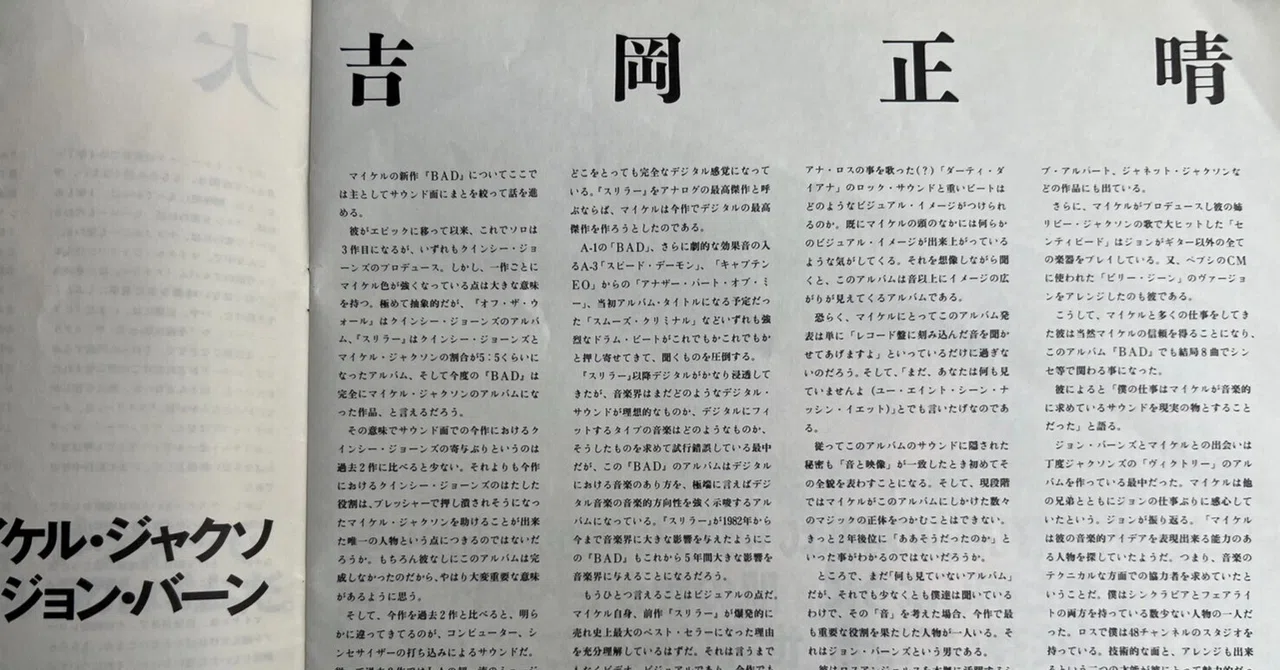 吉岡正晴
マイケルの新作『BAD』についてここで
は主としてサウンド面にまとを絞って話を進
める。
彼がエピックに移って以来、これでソロは
3作目になるが、いずれもクインシー・ジョ
ーンズのプロデュース。しかし、一作ごとに
マイケル色が強くなっている点は大きな意味
を持つ。極めて抽象的だが、『オフ・ザ・ウ
ォール』はクインシー・ジョーンズのアルバ
ム、『スリラー』はクインシー・ジョーンズと
マイケル・ジャクソンの割合が5:5くらいに
なったアルバム、そして今度の『BAD』は
完全にマイケル・ジャクソンのアルバムにな
った作品、と言えるだろう。
その意味でサウンド面での今作におけるク
インシー・ジョーンズの寄与ぶりというのは
過去2作に比べると少ない。それよりも今作
におけるクインシー・ジョーンズのはたした
役割は、プレッシャーで押し潰されそうになっ
たマイケル・ジャクソンを助けることが出来
た唯一の人物という点につきるのではないだ
ろうか。もちろん彼なしにこのアルバムは完
成しなかったのだから、やはり大変重要な意味
があるように思う。
そして、今作を過去2作と比べると、明ら
かに違ってきてるのが、コンピューター、シ
ンセサイザーの打ち込みによるサウンドだ。
どこをとっても完全なデジタル感覚になって
いる。『スリラー』をアナログの最高傑作と呼
ぶならば、マイケルは今作でデジタルの最高
傑作を作ろうとしたのである。
A-1の「BAD」、さらに劇的な効果音の入
るA-3「スピード・デーモン」、「キャプテン
EO」からの「アナザー・パート・オブ・ミ
ー」、当初アルバム・タイトルになる予定だっ
た「スムーズ・クリミナル」などいずれも強
烈なドラム・ビートがこれでもかこれでもか
と押し寄せてきて、聞くものを圧倒する。
『スリラー』以降デジタルがかなり浸透して
きたが、音楽界はまだどのようなデジタル・
サウンドが理想的なものか、デジタルにフィ
ットするタイプの音楽はどのようなものか、
そうしたものを求めて試行錯誤している最中
だが、この『BAD』のアルバムはデジタル
における音楽のあり方を、極端に言えばデジ
タル音楽の音楽的方向性を強く示唆するアル
バムになっている。『スリラー』が1982年から
今まで音楽界に大きな影響を与えたようにこ
の『BAD』もこれから5年間大きな影響を
音楽界に与えることになるだろう。
もうひとつ言えることはビジュアルの点だ。
マイケル自身、前作『スリラー』が爆発的に
売れ史上最大のベスト・セラーになった理由
を充分理解しているはずだ。それは言うまで
アナ・ロスの事を歌った(?)「ダーティ・ダ
イアナ」のロック・サウンドと重いビートは
どのようなビジュアル・イメージがつけられ
るのか。既にマイケルの頭のなかには何らか
のビジュアル・イメージが出来上がっている
ような気がしてくる。それを想像しながら聞
くと、このアルバムは音以上にイメージの広
がりが見えてくるアルバムである。
恐らく、マイケルにとってこのアルバム発
表は単に「レコード盤に刻み込んだ音を聞か
せてあげますよ」といっているだけに過ぎな
いのだろう。そして、「まだ、あなたは何も見
ていませんよ(ユー・エイント・シーン・ナ
ッシン・イエット)」とでも言いたげなのであ
る。
従ってこのアルバムのサウンドに隠された
秘密も「音と映像」が一致したとき初めてそ
の全貌を表わすことになる。そして、現段階
ではマイケルがこのアルバムにしかけた数々
のマジックの正体をつかむことはできない。
きっと2年後位に「ああそうだったのか」と
いった事がわかるのではないだろうか。
ところで、まだ「何も見ていないアルバム」
だが、それでも少なくとも僕達は聞いている
わけで、その「音」を考えた場合、今作で最
も重要な役割を果たした人物が一人いる。そ
れはジョン・バーンズという男である。
彼はロスアンジェルスを本拠に活躍するシ
ブ・アルバート、ジャネット・ジャクソンな
どの作品にも出ている。
さらに、マイケルがプロデュースし彼の姉
リビー・ジャクソンの歌で大ヒットした「セ
ンティピード」はジョンがギター以外の全て
の楽器をプレイしている。又、ペプシのCM
に使われた「ビリー・ジーン」のヴァージョ
ンをアレンジしたのも彼である。
こうして、マイケルと多くの仕事をしてき
た彼は当然マイケルの信頼を得ることになり、
このアルバム『BAD』でも結局8曲でシン
セ等で関わる事になった。
彼によると「僕の仕事はマイケルが音楽的
に求めているサウンドを現実の物とすること
だった」と語る。
ジョン・バーンズとマイケルとの出会いは
丁度ジャクソンズの「ヴィクトリー」のアル
バムを作っている最中だった。マイケルは他
の兄弟とともにジョンの仕事ぶりに感心して
いたという。ジョンが振り返る。「マイケル
は彼の音楽的アイデアを表現出来る能力のあ
る人物を探していたようだ。つまり、音楽の
テクニカルな方面での協力者を求めていたと
いうことだ。僕はシンクラビアとフェアライ
トの両方を持っている数少ない人物の一人だ
った。ロスで僕は48チャンネルのスタジオを
持っている。技術的な面と、アレンジも出来
イケル・ジャクソ
ジョン・バーン